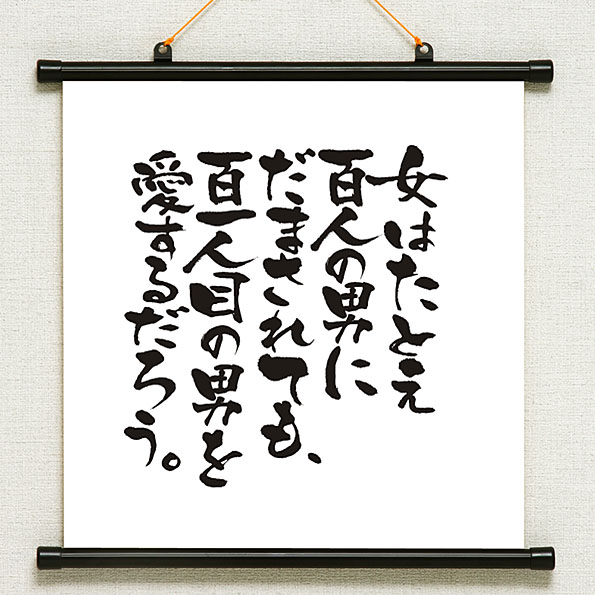 女はたとえ
百人の男に
だまされても、
百一人目の男を
愛するだろう。